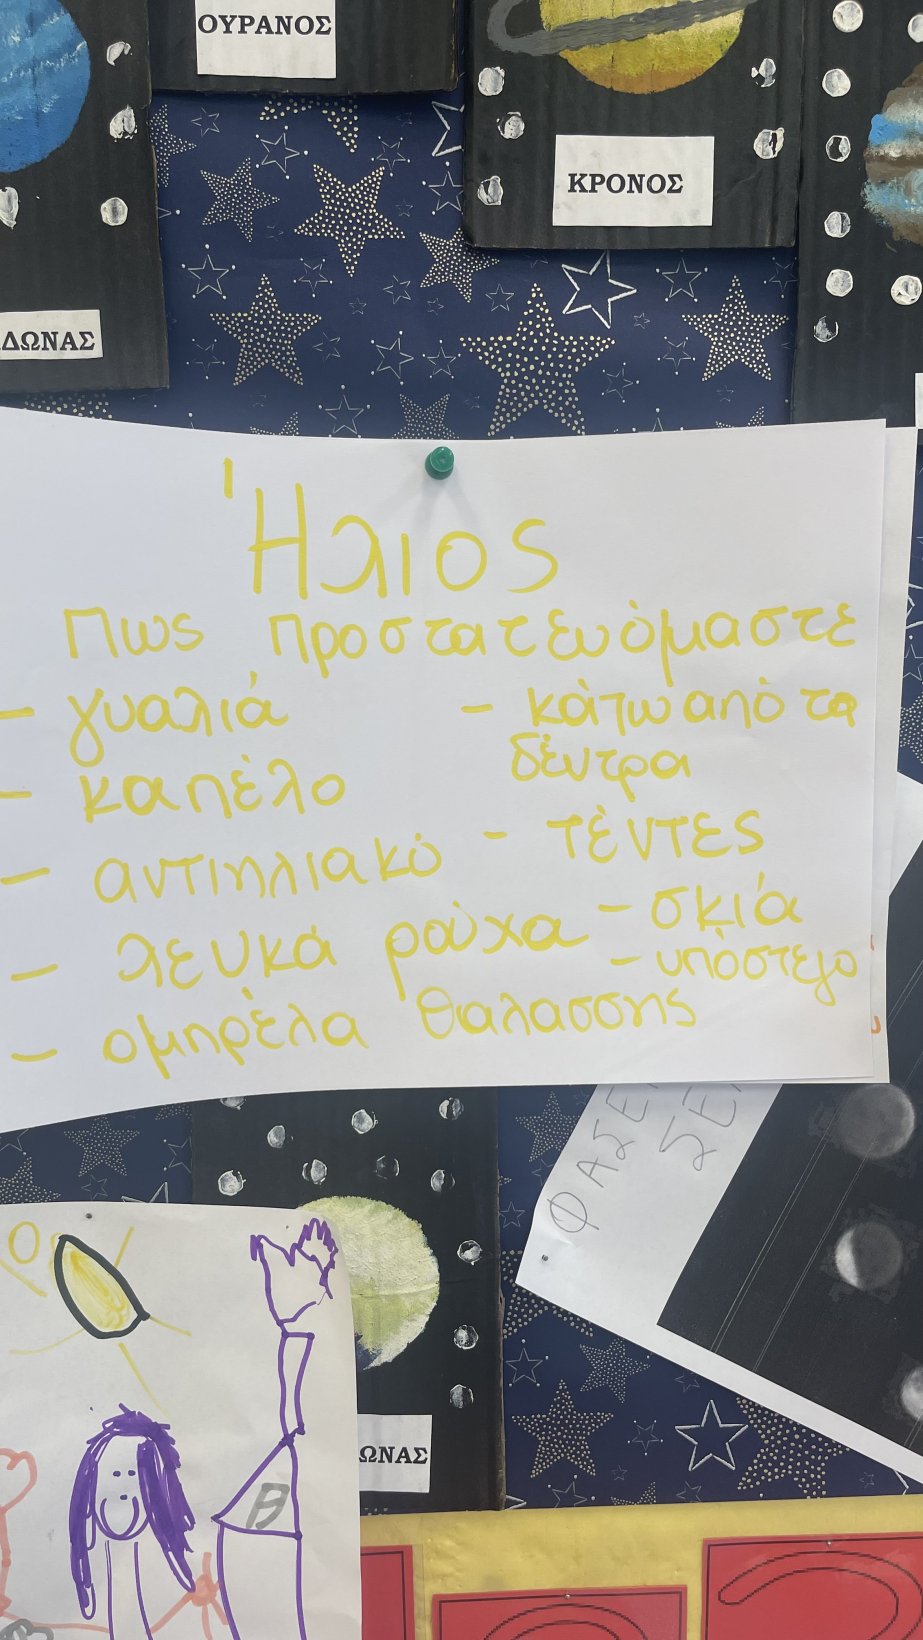 ΟΥΡΑΝΟΣ
ΚΡΟΝΟΣ
ΔΩΝΑΣ
Ήλιος
Πως προστατευόμαστε
- γυαλιά
- καπέλο
- αντιηλιακό
- λευκά ρούχα
- ομπρέλα θαλασσης
- κάτω από τα
δέντρα
- τέντες
- σκιά
- υπόστεγο
ΦΑΣΕ
ΣΕ
ΩΝΑΣ
Β